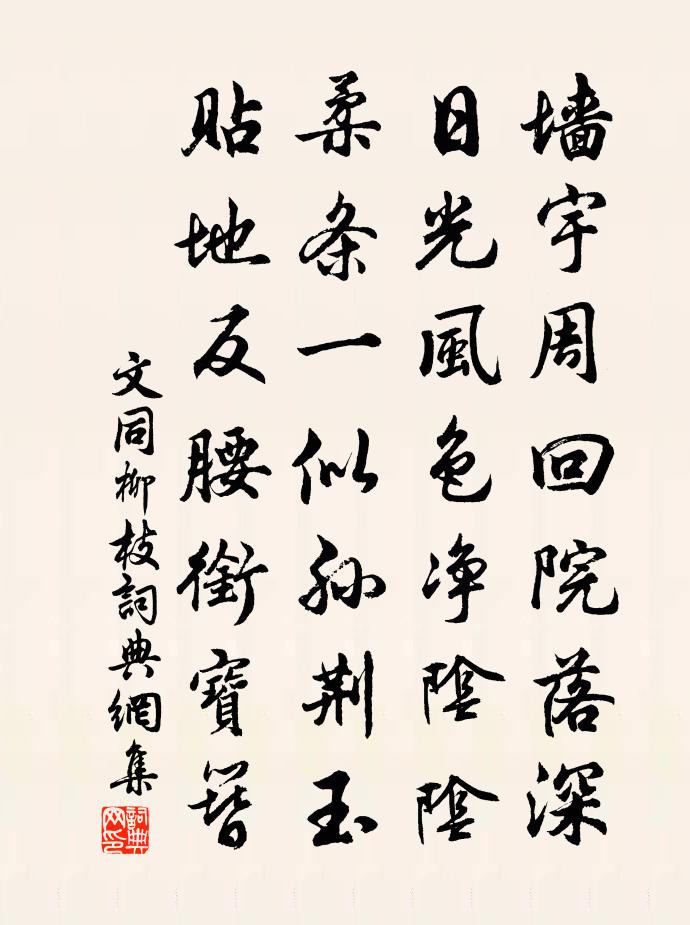 墙宇周回院落深
日光風色净陰陰
柔条一似孙荆玉
貼地反腰銜寶簪
文同柳枝詞典網集
詞典網印